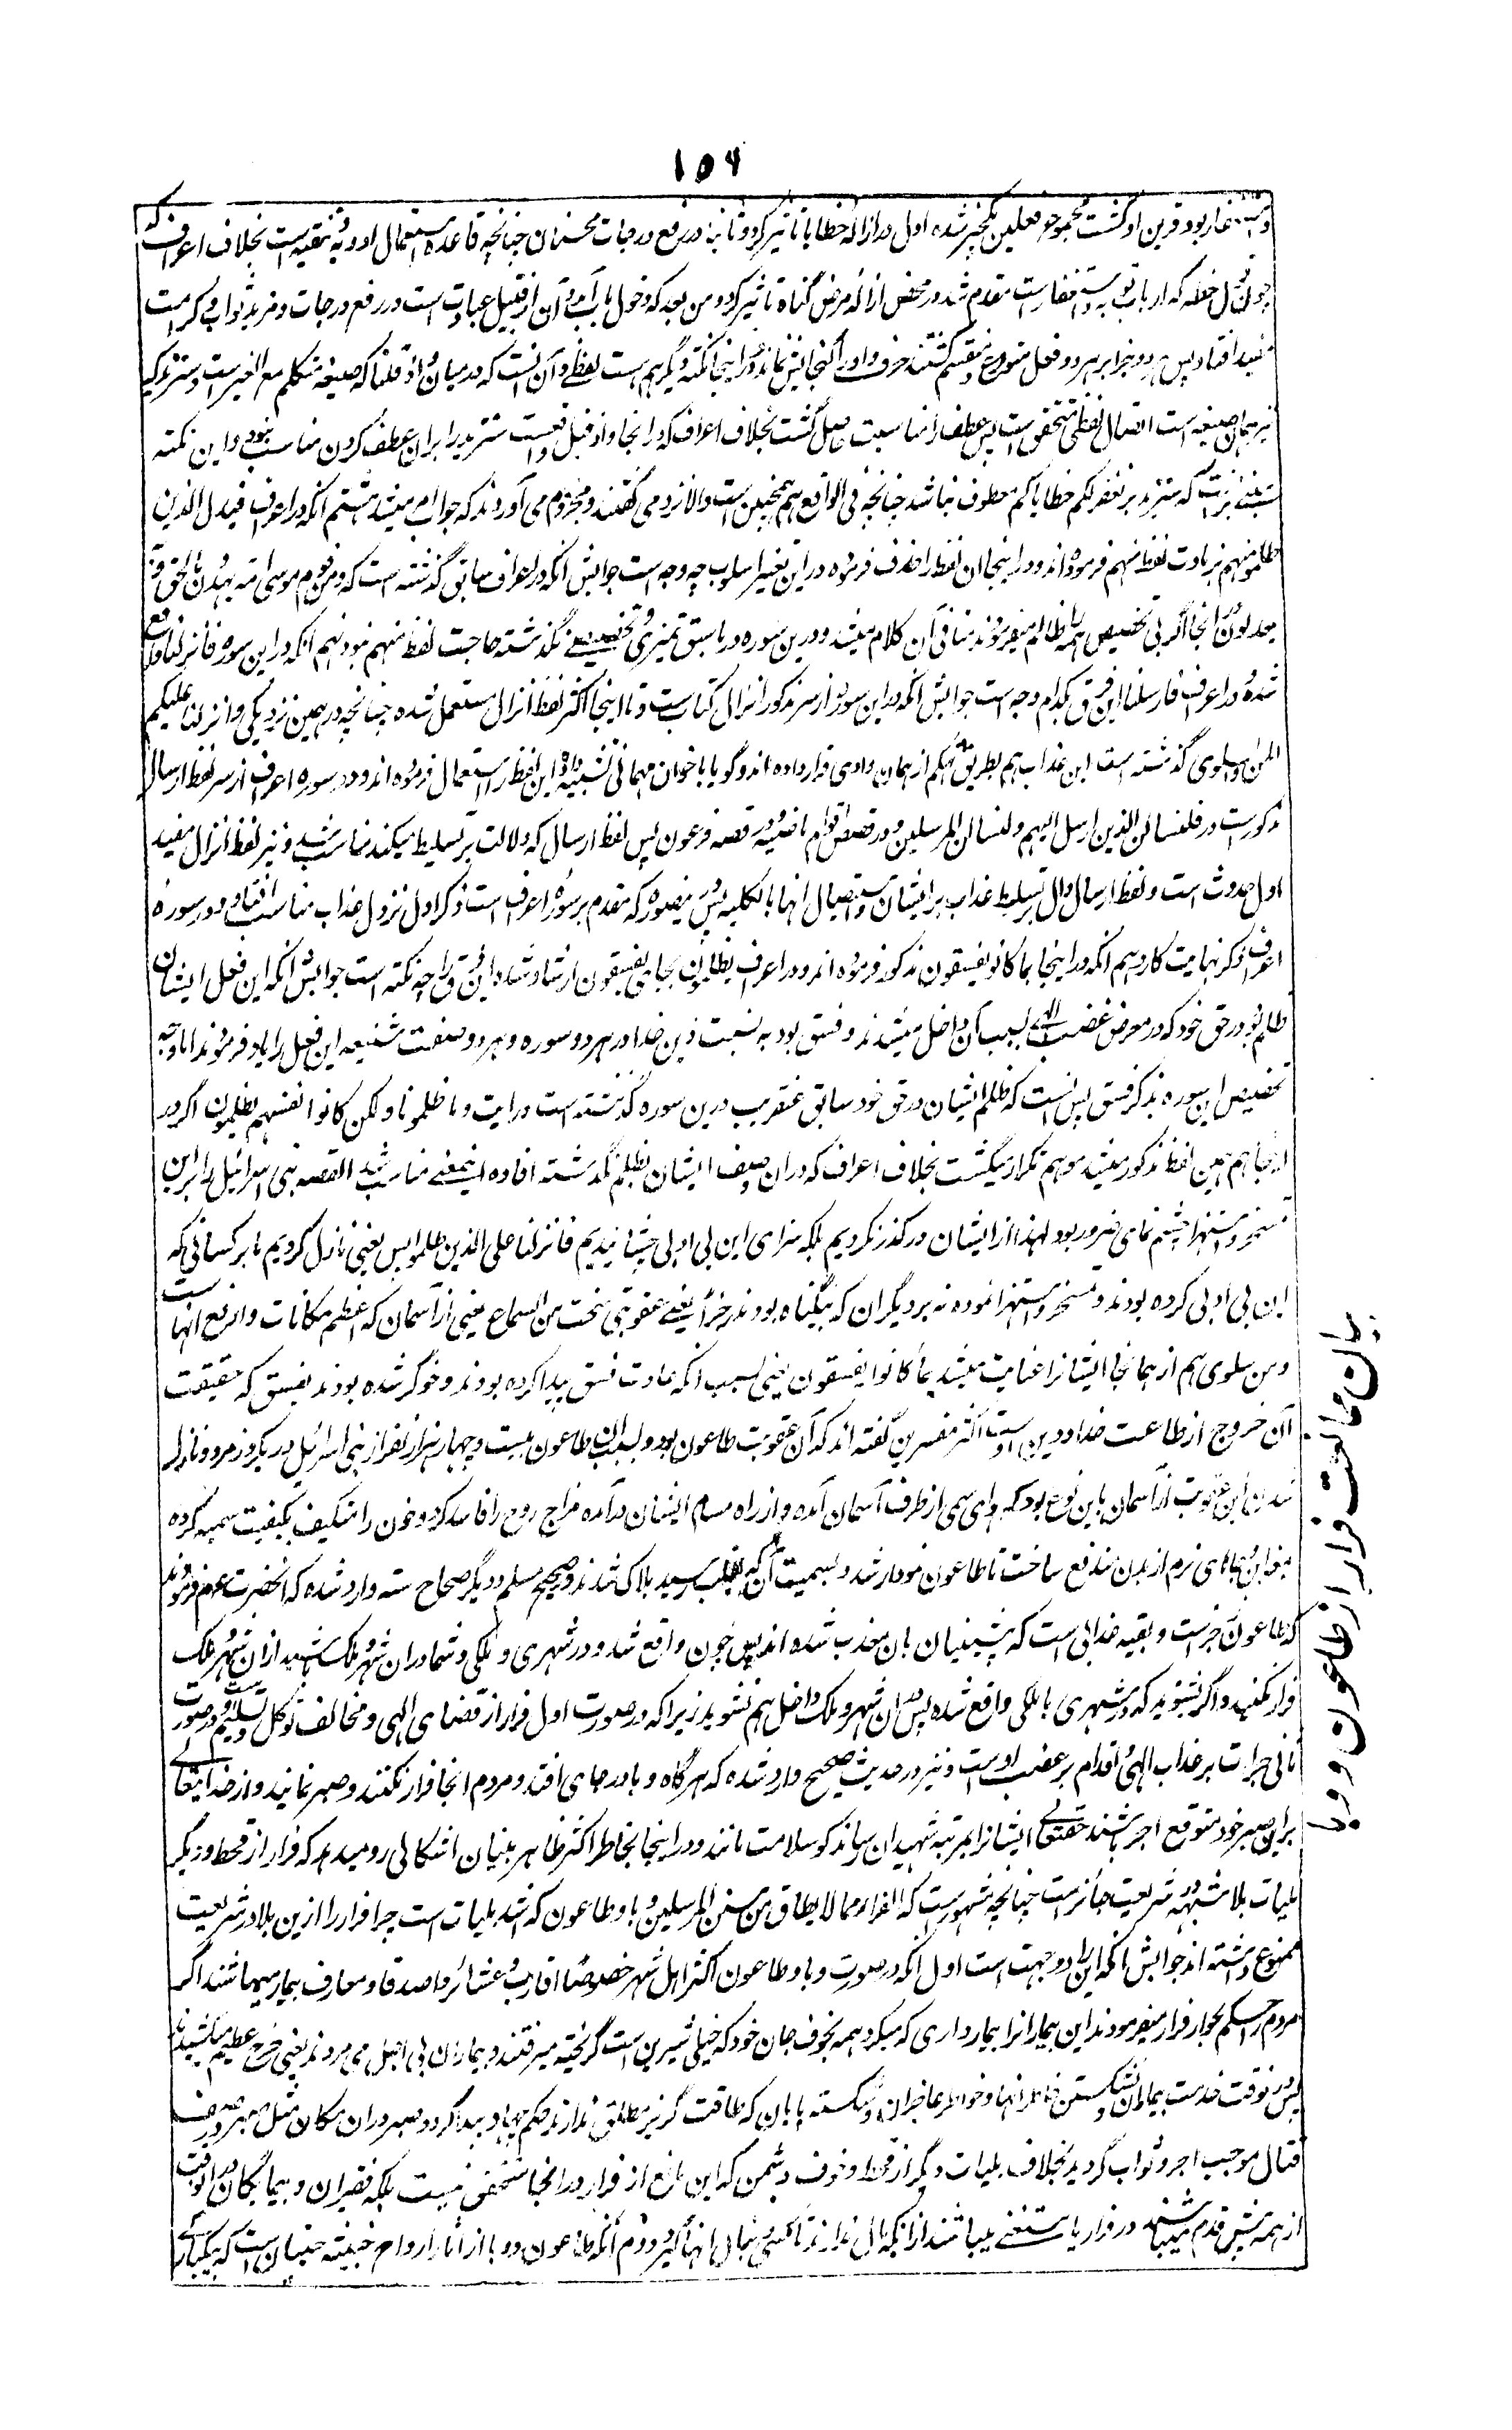 ۱۵۶
استغفار بود قرین او گشت مجموع فعلین یکچیز شده اول در ازاله خطایا تاثیر کرد و ثانیا در رفع درجات محسنان چنانچه قاعده استعمال ادویه تنقیه است بخلاف اعراف که
چون قول حطه که از باب توبه و استغفار است مقدم شد در محض ازاله مرض گناه تاثیر کرد و من بعد که دخول باب آمد و آن از قبیل عبادت است در رفع درجات و مزید ثواب و کرامت
مفید افتاد پس هر دو جزا بر هر دو فعل متوزع و منقسم گشتند حرف واو را گنجایش نماند و در اینجا نکته دیگر هم هست لفظی و آن آنست که در میان و اذ قلنا که صیغه متکلم مع الغیر است و سنزید که
نیز همان صیغه است اتصال لفظی متحقق است پس عطف را مناسبت حاصل گشت بخلاف اعراف که در آنجا و اذ قیل واقعست سنزید را بران عطف کردن مناسب نبود و این نکته
مبتنی برآنست که سنزید بر نغفر لکم خطایاکم معطوف نباشد چنانچه فی الواقع هم همچنین است والا نزد می گفتند و مجزوم می آوردند که جواب امر میشد هشتم آنکه در اعراف فبدل الذین
ظلموا منهم بزیادت لفظ منهم فرموده اند و در اینجا آن لفظ را حذف فرموده در این تغییر اسلوب چه وجه است جوابش آنکه در اعراف سابق گذشته است که و من قوم موسی امة یهدون بالحق و به
یعدلون آنجا اگر بی تخصیص همه را ظالم میفرمودند منافی آن کلام میشد و درین سوره در ما سبق تمیزی و تخصیصی نگذشته حاجت لفظ منهم نبود نهم آنکه در این سوره فانزلنا واقع
شده و در اعراف فارسلنا این فرق بکدام وجه است جوابش آنکه در این سوره از سر مذکور انزال کتابست و تا اینجا اکثر لفظ انزال مستعمل شده چنانچه در همین نزدیکی و انزلنا علیکم
المن و السلوی گذشته است این عذاب هم بطریق تهکم از همان وادی قرار داده اند و گویا با خوان مهمانی تشبیه داده این لفظ را استعمال فرموده اند و در سوره اعراف از سر لفظ ارسال
مذکور است در فلنسألن الذین ارسل الیهم و لنسألن المرسلین و در قصص اقوام ماضیه و در قصه فرعون پس لفظ ارسال که دلالت بر تسلیط میکند مناسب شد و نیز لفظ انزال مفید
اول حدوث است و لفظ ارسال دال بر تسلیط عذاب بر ایشان و استیصال انها بالکلیه پس در سوره که مقدم بر سوره اعراف است ذکر اول نزول عذاب مناسب افتاد و در سوره
اعراف ذکر نهایت کار دهم آنکه در اینجا بما کانوا یفسقون مذکور فرموده اند و در اعراف یظلمون بجای یفسقون ارشاد شده این فرق را چه نکته است جوابش آنکه این فعل ایشان
ظلم بود در حق خود که در معرض غضب الهی بسبب آن داخل میشدند و فسق بود به نسبت دین خدا در هر دو سوره هر دو صفت شنیعه این فعل را یاد فرمودند اما وجه
تخصیص این سوره بذکر فسق پس آنست که ظلم ایشان در حق خود سابق عنقریب درین سوره گذشته است در آیت و ما ظلمونا و لکن کانوا انفسهم یظلمون اگر در
اینجا هم همین لفظ مذکور میشد موهم تکرار میگشت بخلاف اعراف که دران وصف ایشان بظلم نگذشته افاده اینمعنی مناسب شد القصه بنی اسرائیل را برین
تمسخر و استهزا چشم نمائی ضرور بود لهذا از ایشان در گذر نکردیم بلکه سزای این بی ادبی چشانیدیم فانزلنا علی الذین ظلموا پس یعنی نازل کردیم ما بر کسانی که
این بی ادبی کرده بودند و تمسخر و استهزا نموده نه بر دیگران که بیگناه بودند رجزاً یعنی عقوبتی سخت من السماء یعنی از آسمان که اعظم مکانات و ارفع انهاست
و من سلوی هم از همانجا ایشانرا عنایت میشد بما کانوا یفسقون یعنی بسبب آنکه عادت فسق پیدا کرده بودند و خوگر شده بودند بفسق که حقیقت
آن خروج از طاعت خدا و دین اوست اکثر مفسرین گفته اند که آن عقوبت طاعون بود و بسبب آن طاعون بیست و چهار هزار نفر از بنی اسرائیل در یکروز مردند و نازل
شدن این عقوبت از آسمان باین نوع بود که هوای سمی از طرف آسمان آمده و از راه مسام ایشان درآمده مزاج روح را فاسد کرد و خون را متکیف بکیفیت سمیه کرده
بمغابن و جاهای نرم از بدن مندفع ساخت تا طاعون نمودار شد و سمیت آن که بقلب رسید هلاک شدند و در صحیح مسلم و دیگر صحاح سته وارد شده که آنحضرت صلعم فرمودند
که طاعون رجز است و بقیه عذابی است که پیشینیان بآن معذب شده اند پس چون واقع شد و در شهری و ملکی و شما دران شهر و ملک باشید ازان شهر و ملک
فرار نکنید و اگر بشنوید که در شهری یا ملکی واقع شده پس در ان شهر و ملک داخل هم نشوید زیرا که در صورت اول فرار از قضای الهی و مخالف توکل و تسلیم است و در صورت
ثانی جرات بر عذاب الهی و اقدام بر غضب اوست و نیز در حدیث صحیح وارد شده که هرگاه وبا در جای افتد و مردم آنجا فرار نکنند و صبر نمایند و از خدایتعالی
براین صبر خود متوقع اجر باشند حقتعالی ایشانرا بمرتبه شهیدان رساند گو سلامت مانند و در اینجا بخاطر اکثر ظاهر بینان اشکالی رو میدهد که فرار از قحط و دیگر
بلیات بلا شبهه در شریعت جائز است چنانچه مشهور است که الفرار مما لا یطاق من سنن المرسلین و وبا و طاعون که اشد بلیات است چرا فرار را ازین بلا در شریعت
ممنوع داشته اند جوابش آنکه این را دو جهت است اول آنکه در صورت وبا و طاعون اکثر اهل شهر خصوصا اقارب و عشائر و اصدقا و معارف بیمار میباشند اگر
مردم را حکم بجواز فرار میفرمودند این بیمارانرا بیمارداری که میکرد همه بخوف جان خود که خیلی شیرین است گریخته میرفتند و بیماران بی اجل می مردند یعنی حرج عظیم میکشیدند
پس در نوقت خدمت بیماران و نشکستن خاطر انها و خواطر عاجزان و شکسته پایان که طاقت گریز مطلق ندارند حکم جهاد پیدا کرد و صبر دران مکان مثل صبر در صف
قتال موجب اجر و ثواب گردید بخلاف بلیات دیگر از قحط و خوف دشمن که این مانع از فرار در آنجا متحقق نیست بلکه فقیران و بیمایگان در آنوقت
از همه پیش قدم میباشند در فرار یا مستغنی میباشند ازانکه مال ندارند تا کسی دنبال انها گیرد دوم آنکه طاعون و وبا از آثار ارواح خبیثه جنیان است که بیکبار
بیان ممانعت فرار از طاعون و وبا